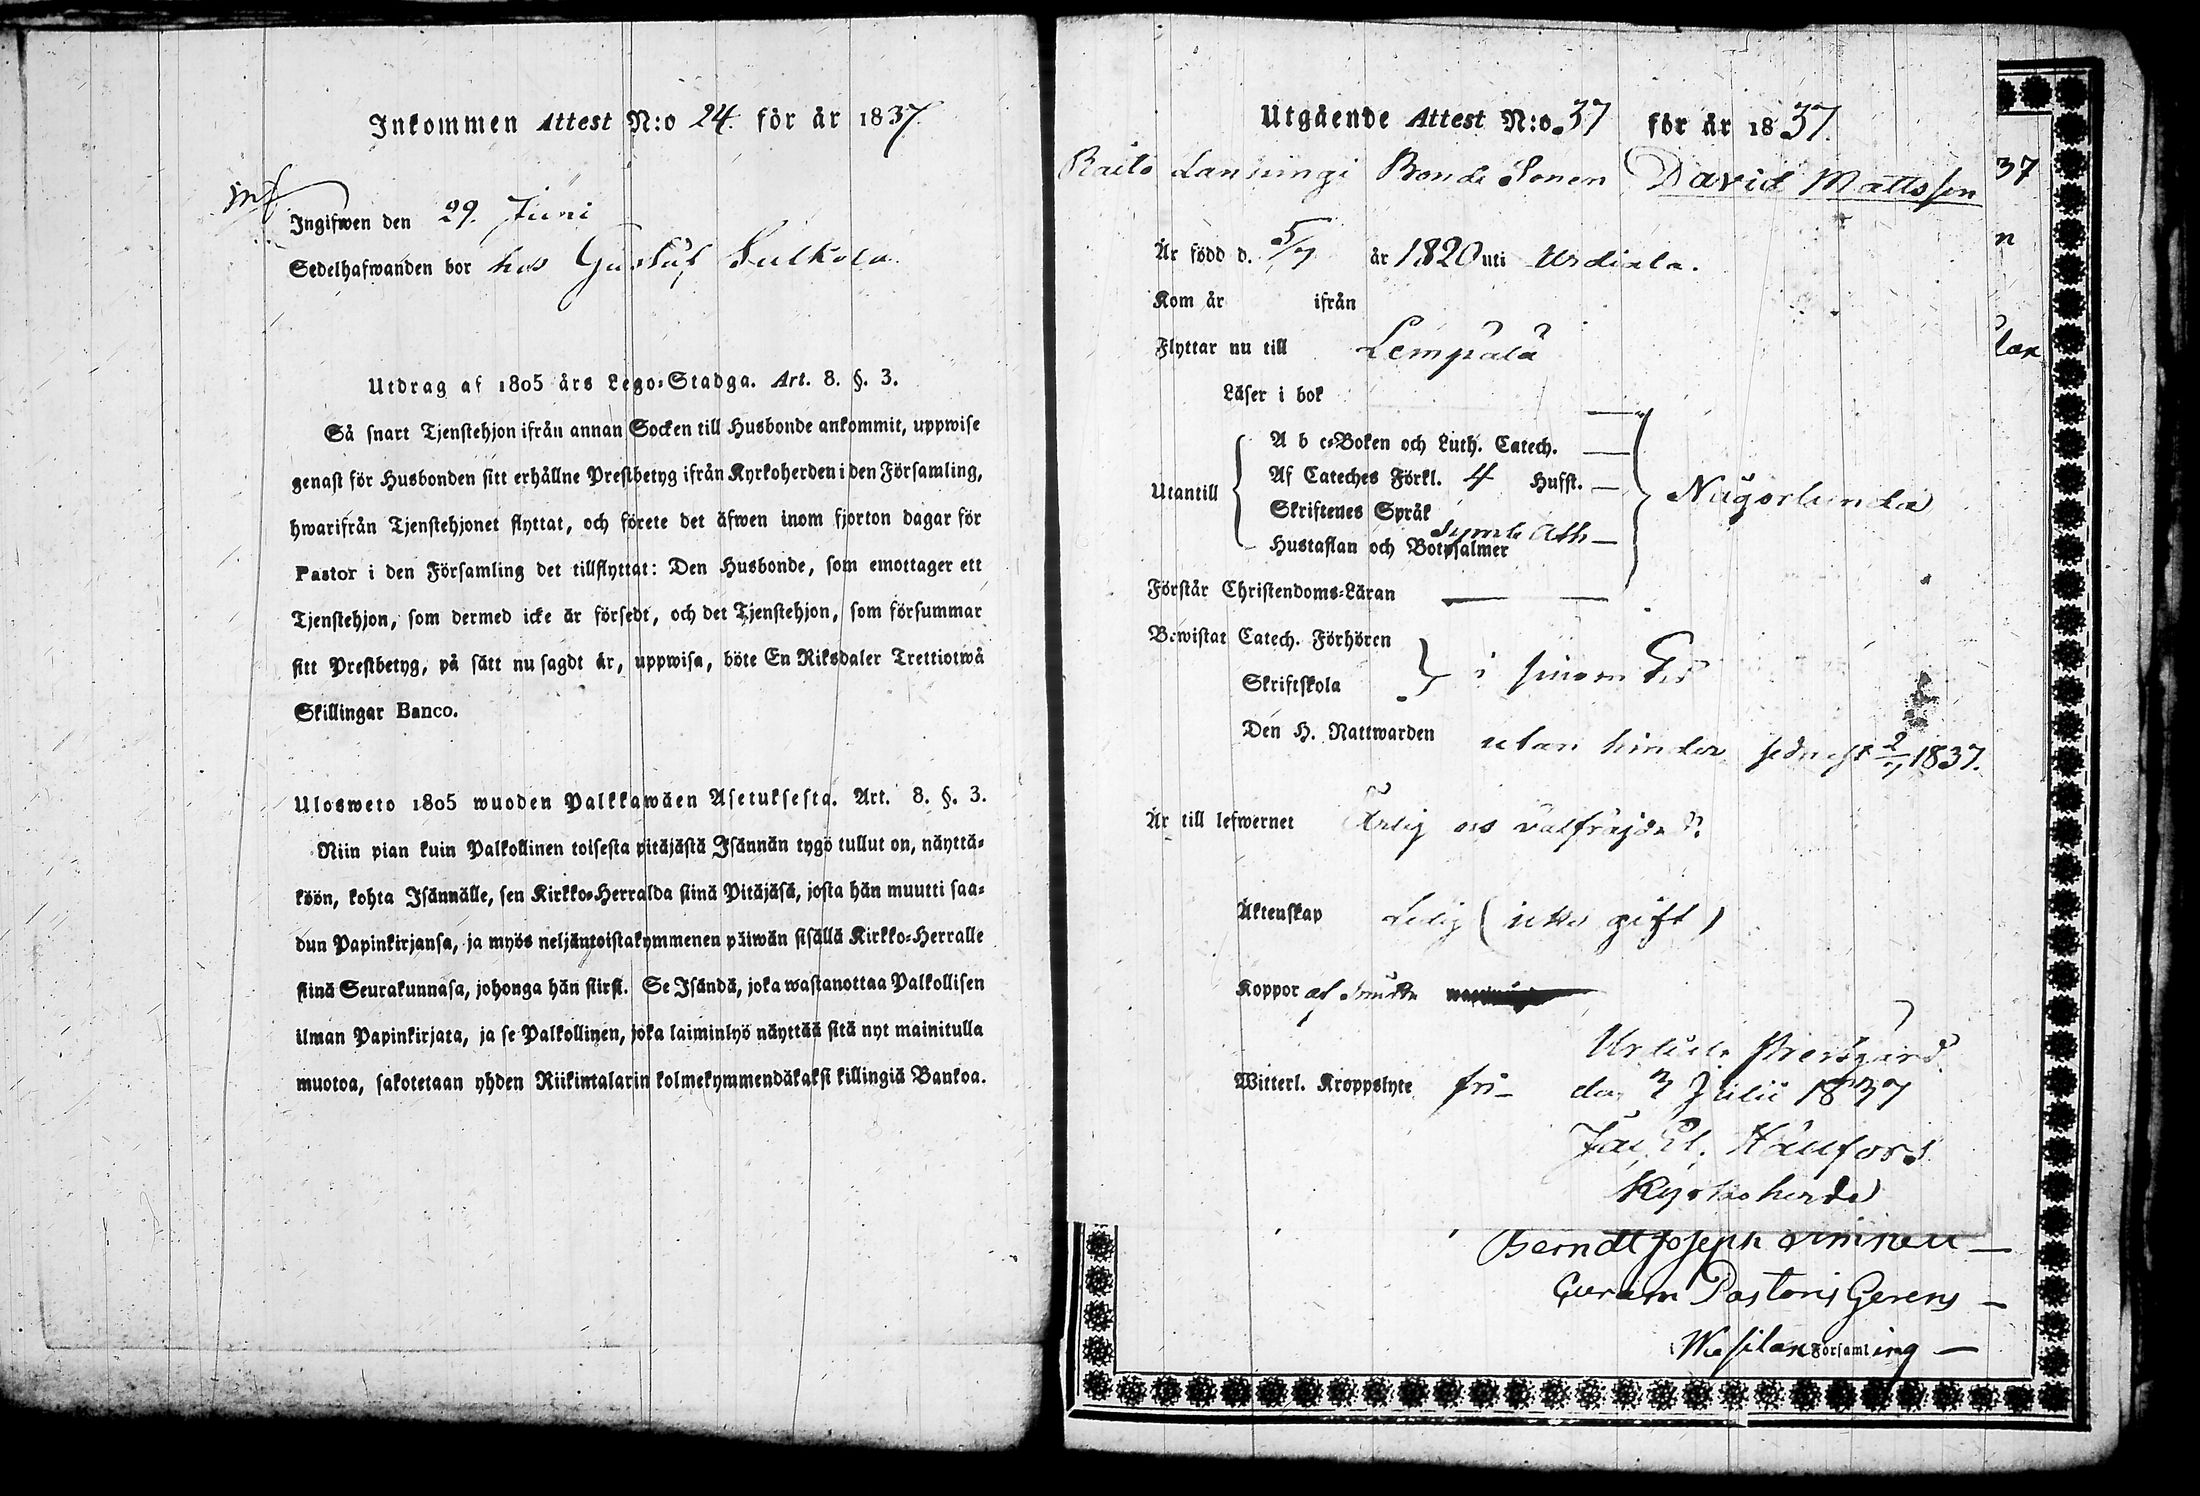 Inkommen Attest N:o 24. för år 1837.
Ingifwen den 29. Juni
Sedelhafwanden bor hos Gustaf Sulkola
Utdrag af 1805 års Lego-Stadga. Art. 8. §. 3.
Så snart Tjenstehjon ifrån annan Socken till Husbonde ankommit, uppwise
genast för Husbonden sitt erhållne Prestbetyg ifrån Kyrkoherden i den Församling,
hwarifrån Tjenstehjonet flyttat, och förete det äfwen inom fjorton dagar för
Pastor i den Församling det tillflyttat: Den Husbonde, som emottager ett
Tjenstehjon, som dermed icke är försedt, och det Tjenstehjon, som försummar
sitt Prestbetyg, på sätt nu sagdt är, uppwisa, böte En Riksdaler Trettiotwå
Skillingar Banco.
Ulosweto 1805 wuoden Palkkawäen Asetuksesta. Art. 8. §. 3.
Niin pian kuin Palkollinen toisesta pitäjästä Isännän tygö tullut on, näyttä-
köön, kohta Isännälle, sen Kirkko-Herralda siinä Pitäjäsä, josta hän muutti saa-
dun Papinkirjansa, ja myös neljäntoistakymmenen päiwän sisällä Kirkko-Herralle
siinä Seurakunnasa, johonga hän siirsi. Se Isändä, joka wastanottaa Palkollisen
ilman Papinkirjata, ja se Palkollinen, joka laiminlyö näyttää sitä nyt mainitulla
muotoa, sakotetaan yhden Riikintalarin kolmekymmendäkaksi killingiä Bankoa.
Utgående Attest N:o 37 för år 1837.
Bonde Sonen David Mattsson
Är född d. 5/7 år 1820 uti Urdiala.
Kom år ifrån
Flyttar nu till Lempälä
Läser i bok
A b c-Boken och Luth. Catech. —
Utantill Af Cateches Förkl. 4 Hufst. — Någorlunda
Skriftenes Språk
Symb Ath —
Hustaflan och Botpsalmer
Förstår Christendoms-Läran — —
Bewistat Catech. Förhören
i sinom tid
Skriftskola
Den H. Nattwarden utan hinder sednast 2/7 1837.
Är till lefwernet Ärlig och välfräjdad.
Äktenskap Ledig (icke gift)
Koppor af
Urdiala Prestgård
Witterl. Kroppslyte fri — den 3 Julii 1837
Kyrkoherde
Berndt Joseph —
Curam Pastoris Gerens —
i Wesilax Församling —
37
n
lax